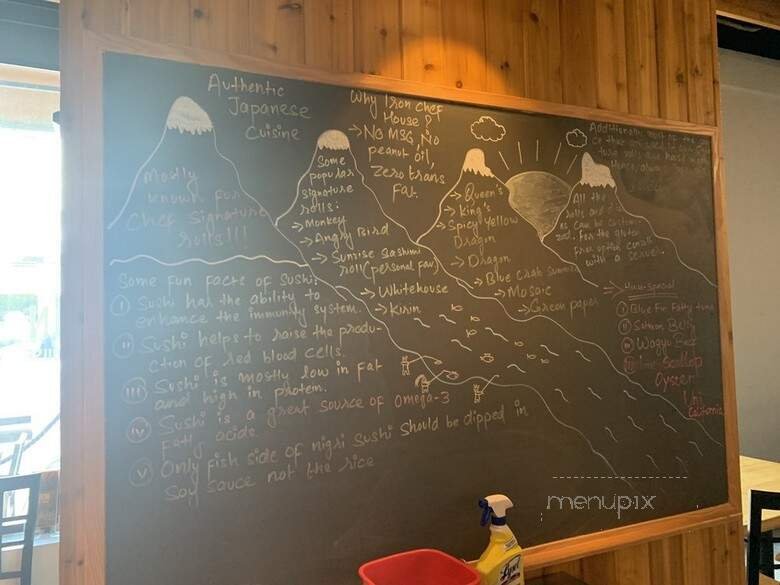 Authentic
Japanese
Cuisine
Mostly
known for
Chef Signature
rolls!!!
Why Iron Chef
House?
→ No MSG, No
peanut oil,
Zero trans
Fat.
Some
popular
signature
rolls:
→ Monkey
→ Angry Bird
→ Sunrise Sashimi
roll (personal fav)
→ Whitehouse
→ Kirin
→ Queen's
→ King's
→ Spicy Yellow
Dragon
→ Dragon
→ Blue Crab Summer
→ Mosaic
→ Green paper
All the
rolls and
as can be customi-
zed. For the gluten
free option consult
with a server.
Additionally, most of the
Some fun facts of Sushi:
I Sushi has the ability to
enhance the immunity system.
II Sushi helps to raise the produ-
ction of red blood cells.
III Sushi is mostly low in fat
and high in protein.
IV Sushi is a great source of omega-3
fatty acids
V Only fish side of nigri sushi should be dipped in
soy sauce not the rice
special
I Blue Fin Fatty tuna
II Salmon Belly
III Wagyu Beef
Scallop
Oyster
Uni
California
menupix
Lysol